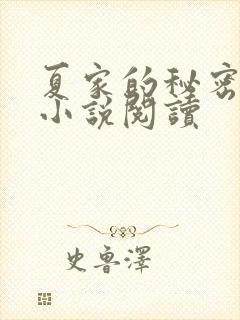 夏家的秘密
小說閱讀
史魯澤